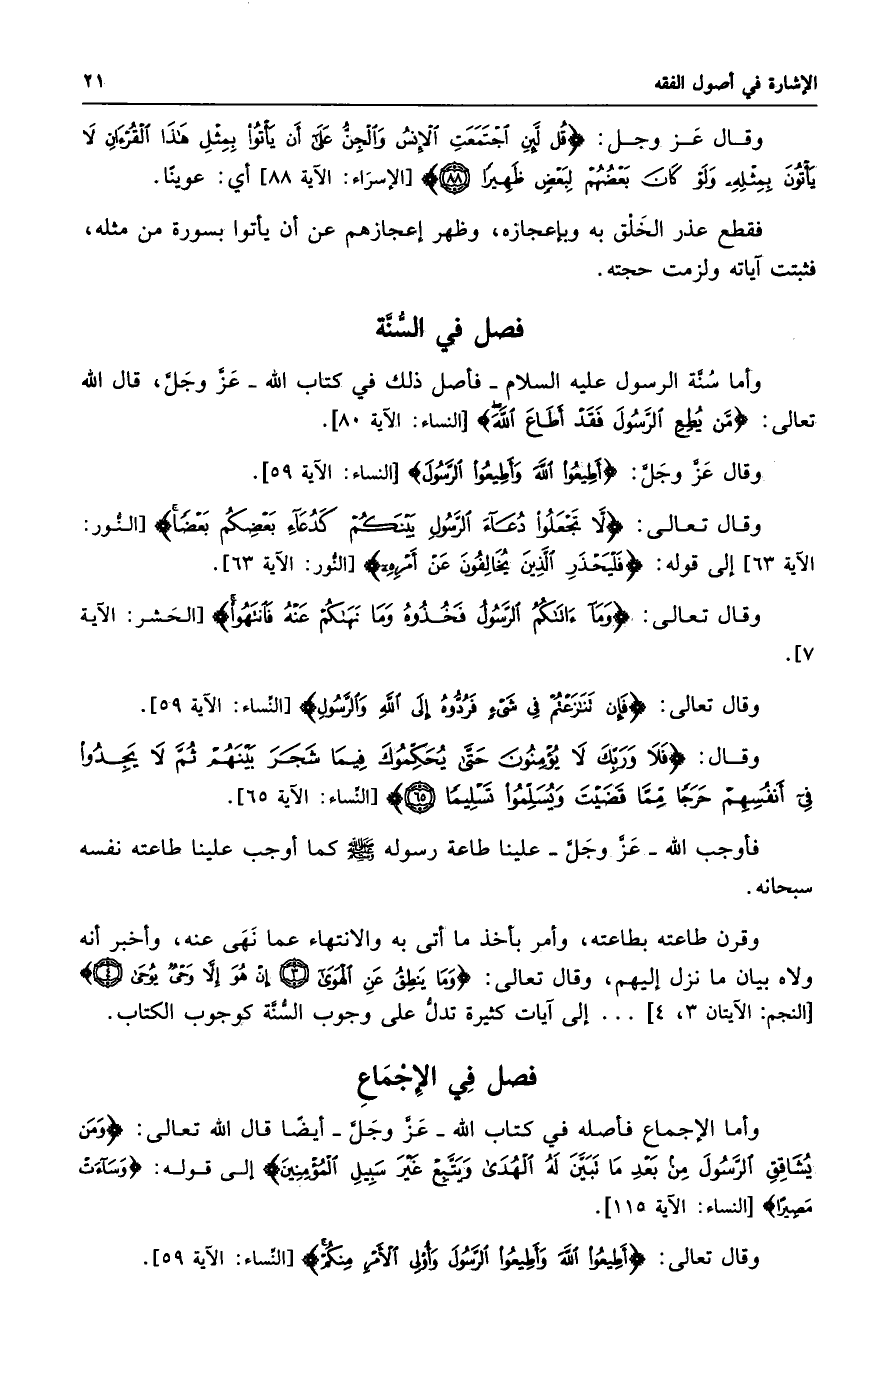 الإشارة في أصول الفقه ٢١
وقال عَز وجل: ﴿قُل لَّئِنِ ٱجْتَمَعَتِ ٱلْإِنسُ وَٱلْجِنُّ عَلَىٰٓ أَن يَأْتُوا۟ بِمِثْلِ هَٰذَا ٱلْقُرْءَانِ لَا
يَأْتُونَ بِمِثْلِهِۦ وَلَوْ كَانَ بَعْضُهُمْ لِبَعْضٍ ظَهِيرًا ٨٨﴾ [الإسرَاء: الآية ٨٨] أي: عوينًا.
فقطع عذر الخَلْق به وبإعجازه، وظهر إعجازهم عن أن يأتوا بسورة من مثله،
فثبتت آياته ولزمت حجته.
فصل في السُّنَّة
وأما سُنَّة الرسول عليه السلام ـ فأصل ذلك في كتاب الله ـ عَزَّ وجَلَّ، قال الله
تعالى: ﴿مَّن يُطِعِ ٱلرَّسُولَ فَقَدْ أَطَاعَ ٱللَّهَۖ﴾ [النساء: الآية ٨٠].
وقال عَزَّ وجَلَّ: ﴿أَطِيعُوا۟ ٱللَّهَ وَأَطِيعُوا۟ ٱلرَّسُولَ﴾ [النساء: الآية ٥٩].
وقال تعالى: ﴿لَّا تَجْعَلُوا۟ دُعَآءَ ٱلرَّسُولِ بَيْنَكُمْ كَدُعَآءِ بَعْضِكُم بَعْضًاۚ﴾ [النُّور:
الآية ٦٣] إلى قوله: ﴿فَلْيَحْذَرِ ٱلَّذِينَ يُخَالِفُونَ عَنْ أَمْرِهِۦٓ﴾ [النُّور: الآية ٦٣].
وقال تعالى: ﴿وَمَآ ءَاتَىٰكُمُ ٱلرَّسُولُ فَخُذُوهُ وَمَا نَهَىٰكُمْ عَنْهُ فَٱنتَهُوا۟ۚ﴾ [الحَشر: الآية
٧].
وقال تعالى: ﴿فَإِن تَنَٰزَعْتُمْ فِى شَىْءٍ فَرُدُّوهُ إِلَى ٱللَّهِ وَٱلرَّسُولِ﴾ [النِّساء: الآية ٥٩].
وقال: ﴿فَلَا وَرَبِّكَ لَا يُؤْمِنُونَ حَتَّىٰ يُحَكِّمُوكَ فِيمَا شَجَرَ بَيْنَهُمْ ثُمَّ لَا يَجِدُوا۟
فِىٓ أَنفُسِهِمْ حَرَجًا مِّمَّا قَضَيْتَ وَيُسَلِّمُوا۟ تَسْلِيمًا ٦٥﴾ [النِّساء: الآية ٦٥].
فأوجب الله ـ عَزَّ وجَلَّ ـ علينا طاعة رسوله ﷺ كما أوجب علينا طاعته نفسه
سبحانه.
وقرن طاعته بطاعته، وأمر بأخذ ما أتى به والانتهاء عما نَهَى عنه، وأخبر أنه
ولاه بيان ما نزل إليهم، وقال تعالى: ﴿وَمَا يَنطِقُ عَنِ ٱلْهَوَىٰٓ ٣ إِنْ هُوَ إِلَّا وَحْىٌ يُوحَىٰ ٤﴾
[النجم: الآيتان ٣، ٤] ... إلى آيات كثيرة تدلُّ على وجوب السُّنَّة كوجوب الكتاب.
فصل فِي الإِجْمَاعِ
وأما الإجماع فأصله في كتاب الله ـ عَزَّ وجَلَّ ـ أيضًا قال الله تعالى: ﴿وَمَن
يُشَاقِقِ ٱلرَّسُولَ مِنۢ بَعْدِ مَا تَبَيَّنَ لَهُ ٱلْهُدَىٰ وَيَتَّبِعْ غَيْرَ سَبِيلِ ٱلْمُؤْمِنِينَ﴾ إلى قوله: ﴿وَسَآءَتْ
مَصِيرًا﴾ [النساء: الآية ١١٥].
وقال تعالى: ﴿أَطِيعُوا۟ ٱللَّهَ وَأَطِيعُوا۟ ٱلرَّسُولَ وَأُو۟لِى ٱلْأَمْرِ مِنكُمْۚ﴾ [النِّساء: الآية ٥٩].